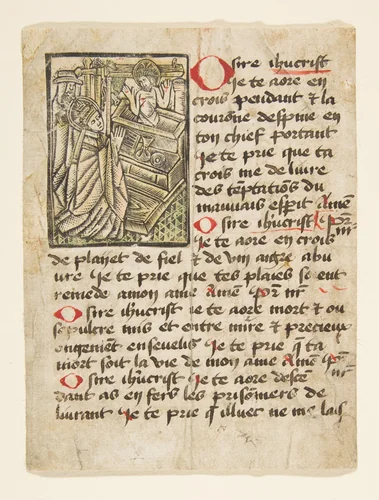 O sire ihucrist
Je te aore en
crois pendant & la
courone despine en
ton chief portant
Je te prie que ta
crois me deliure
des teptations du
mauuais esprit Amē
O sire ihucrist
Je te aore en crois
de plaiet de fiel & de vin aigre abu
ure Je te prie que tes plaies soient
remede a mon ame Amē
O sire ihucrist Je te aore mort & ou
sepulcre mis et entre mire & precieux
ongement enseuelis Je te prie q̄ ta
mort soit la vie de mon ame Amē
O sire ihucrist Je te aore desce
dant as enfers les prisoniers de
liurant Je te prie q̄ illuec ne me lais